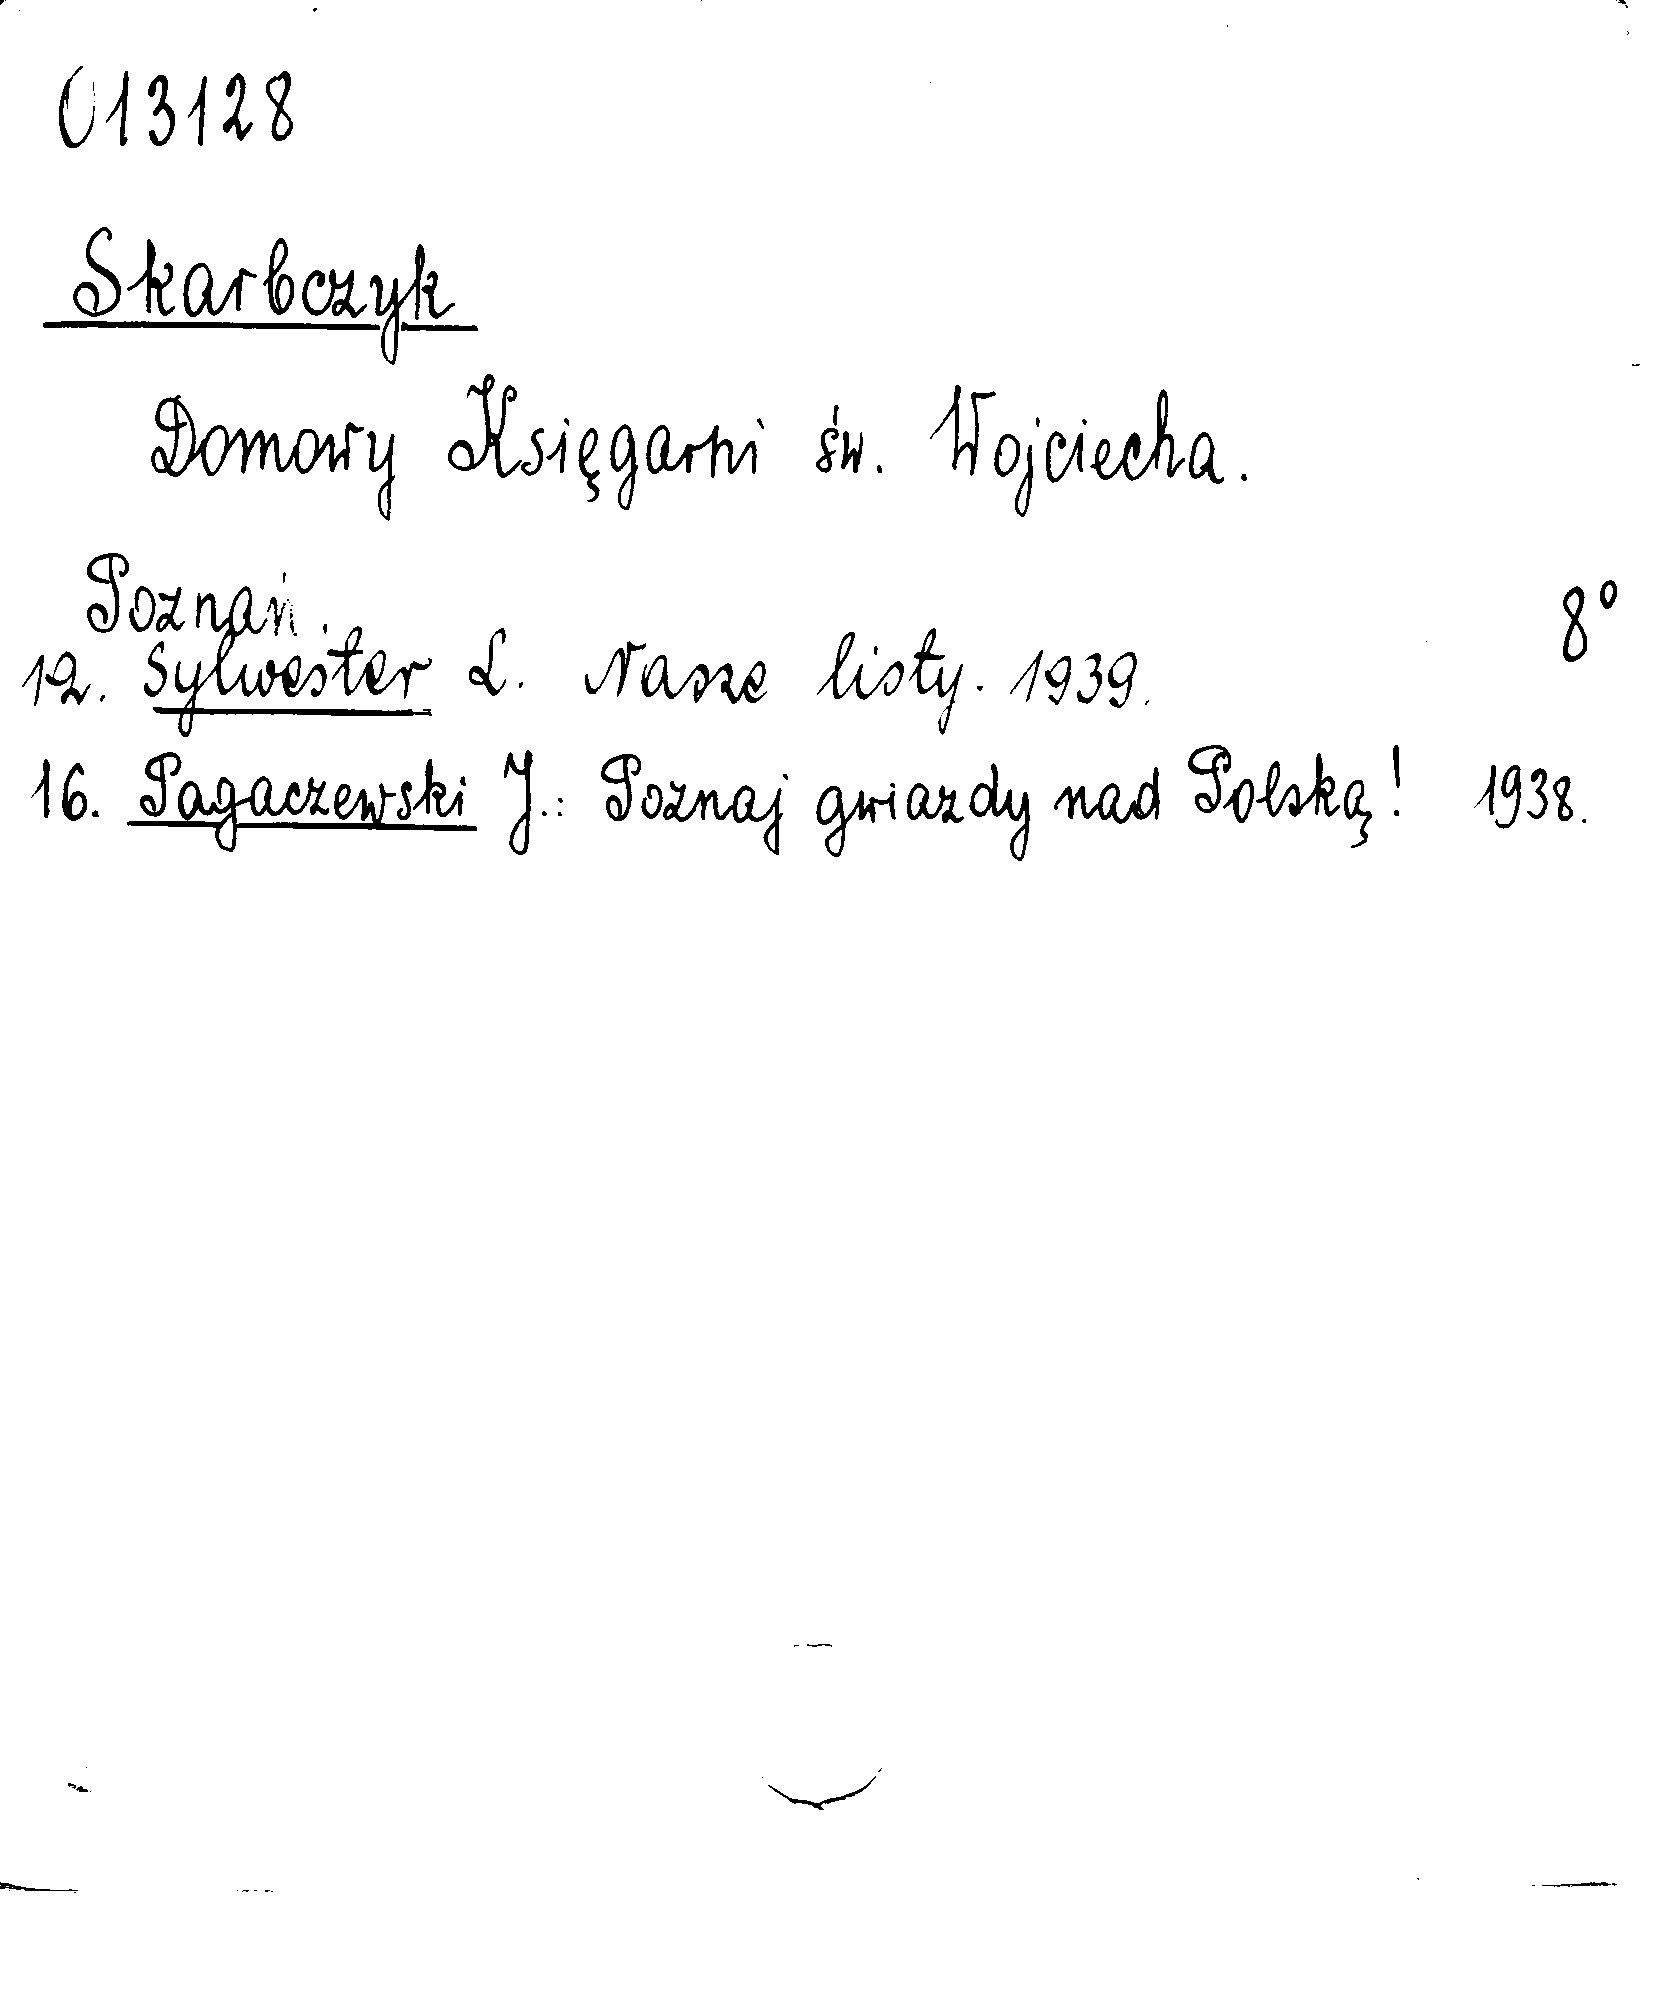 013128
Skarbczyk
Domowy Księgarni św. Wojciecha.
Poznań. 8°
12. Sylwester L. Nasze listy. 1939.
16. Pagaczewski J.: Poznaj gwiazdy nad Polską! 1938.